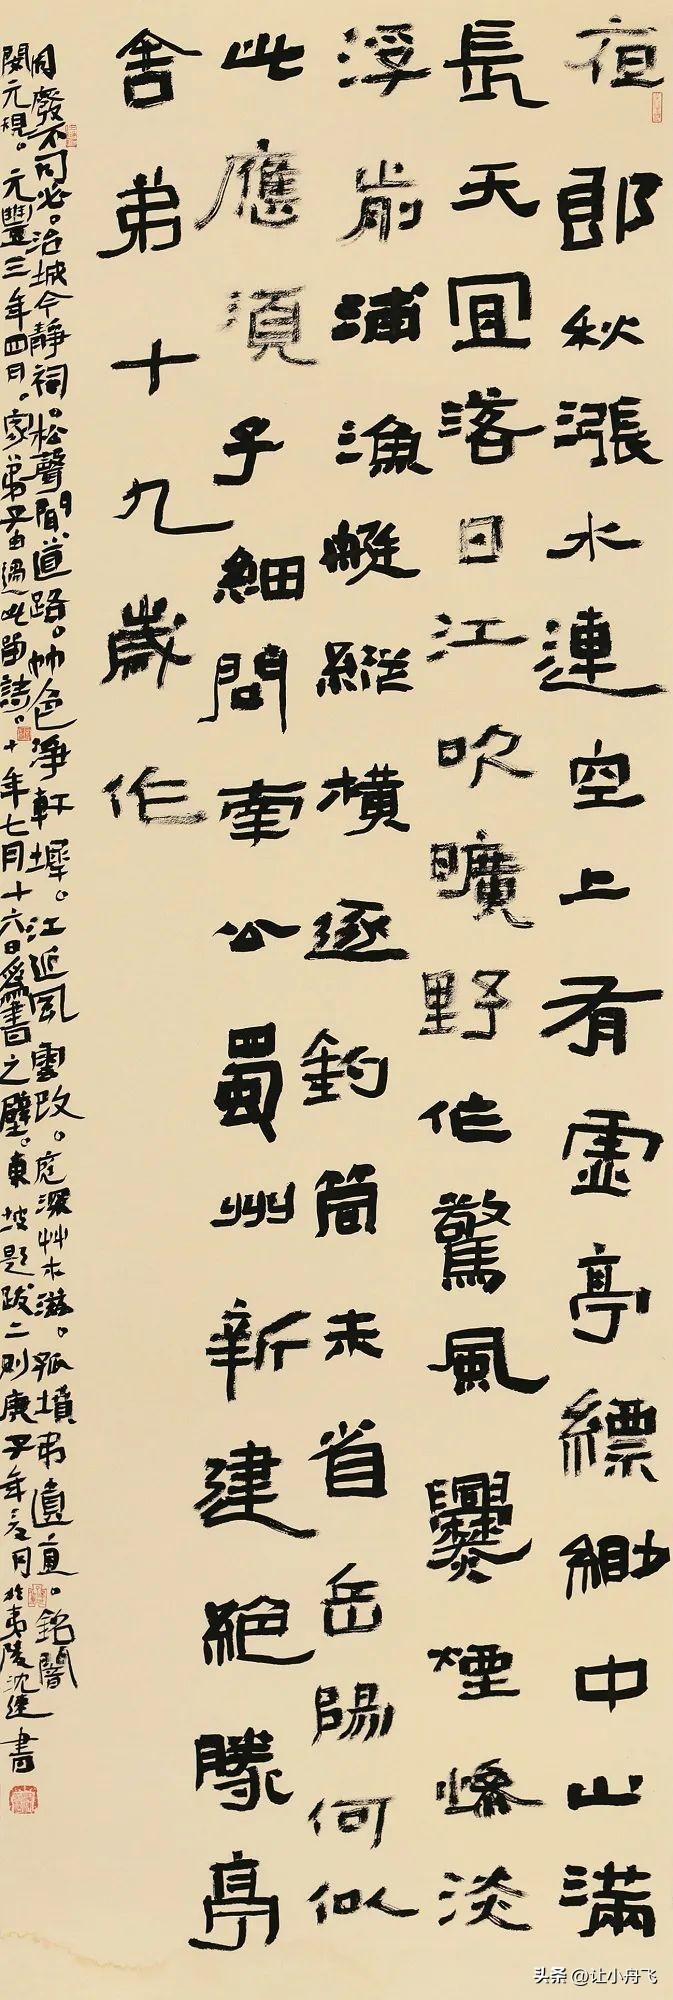 夜郎秋漲水連空上有虛亭縹緲中山滿
長天宜落日江吹曠野作驚風爨煙慘淡
浮前浦漁艇縱橫逐釣筒未省岳陽何似
此應須子細問南公蜀州新建絕勝亭
舍弟十九歲作
廢不可必。冶城今靜祠。松聲聞道路。竹色淨軒墀。江近風雲改。庭深艸木滋。孤墳弔遺直。銘闇
元規。元豐三年四月。家弟子由過此留詩。十年七月十六日為書之壁。東坡題跋二則庚子年月於夷陵沈書
头条 @让小舟飞